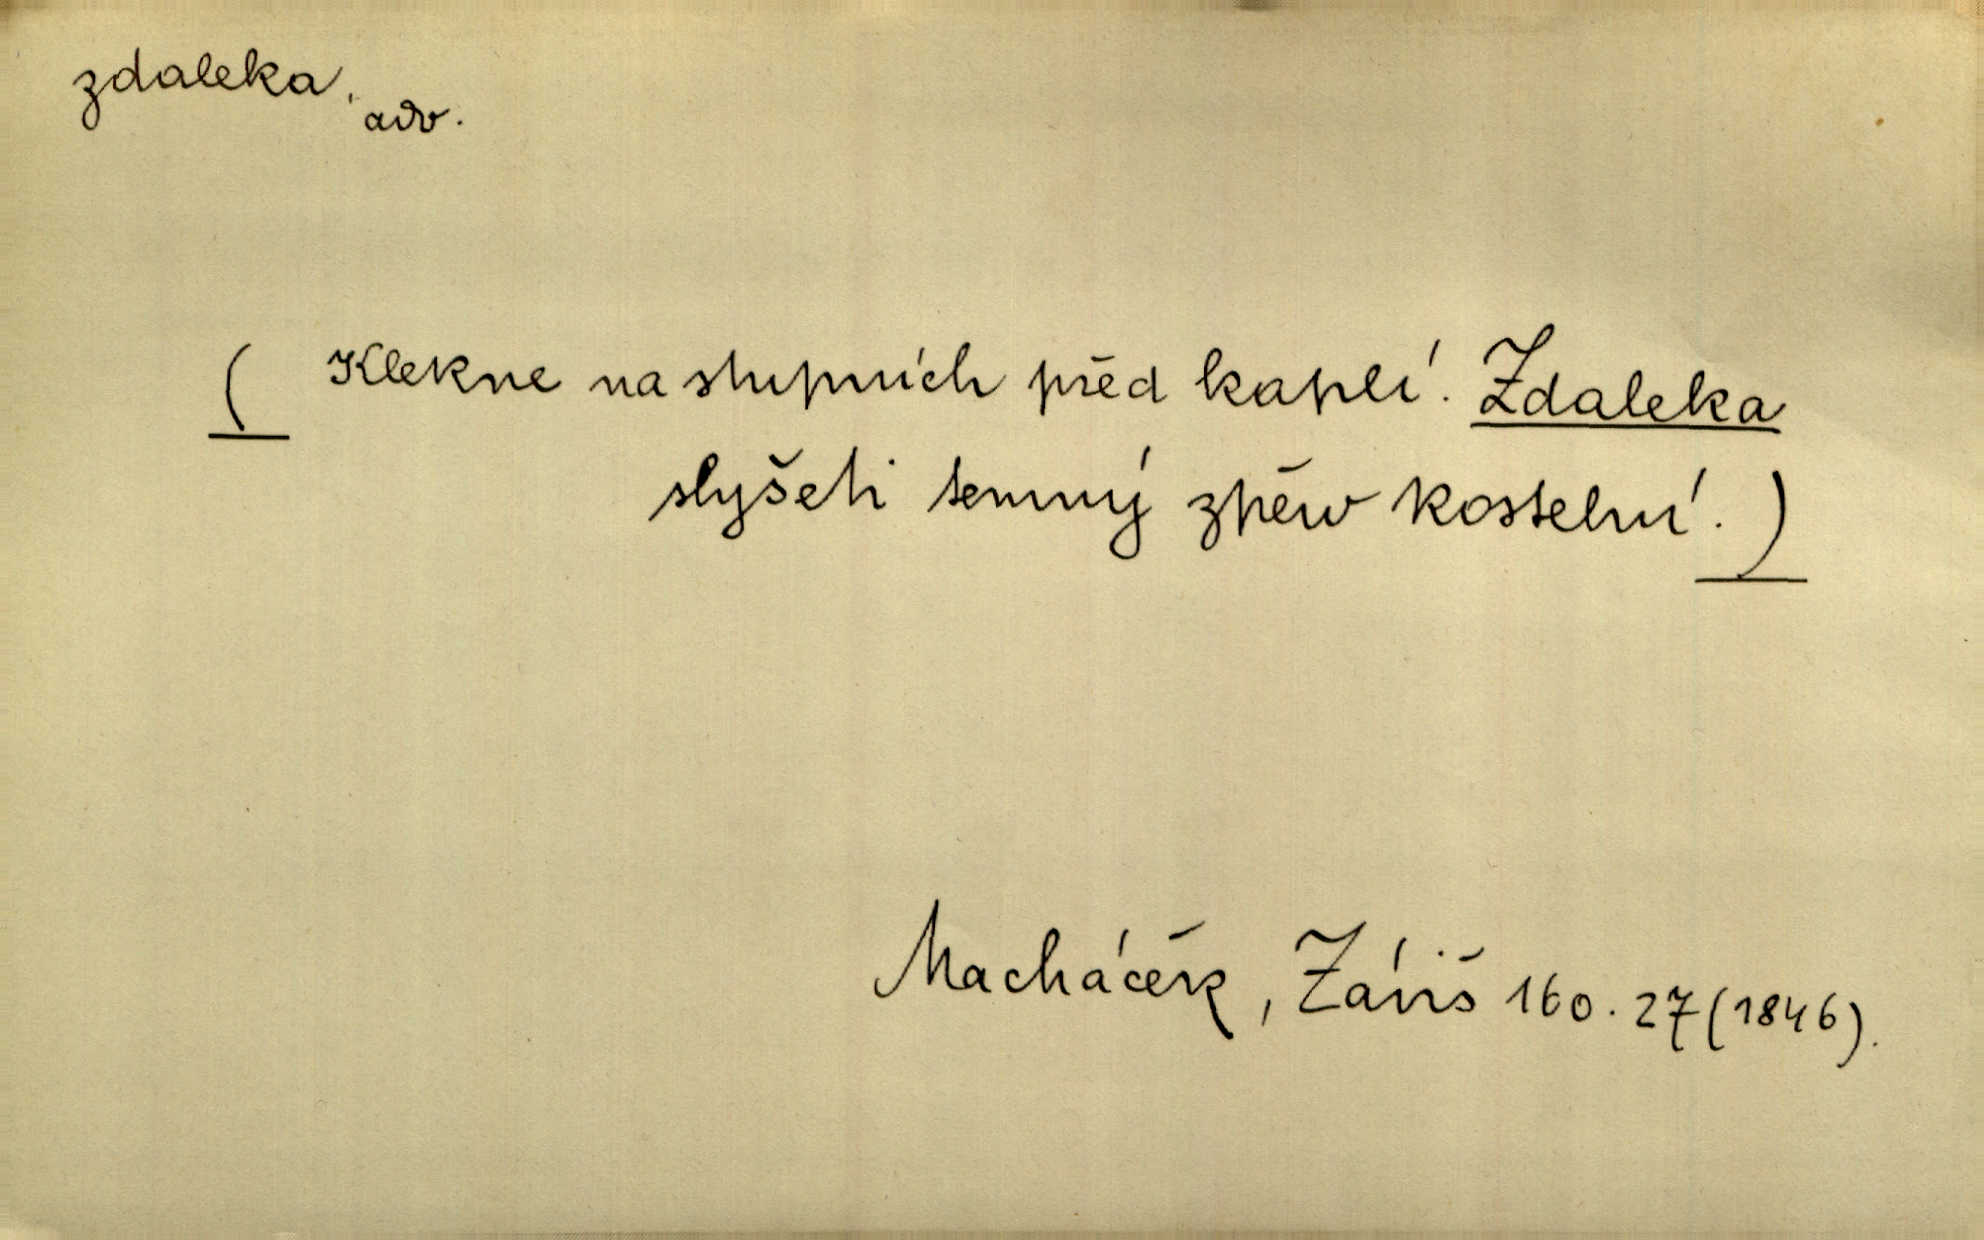 zdaleka, adv.
( Klekne na stupních před kaplí. Zdaleka
slyšeti temný zpěw kostelní. )
Macháček, Záviš 160. 27 (1846).